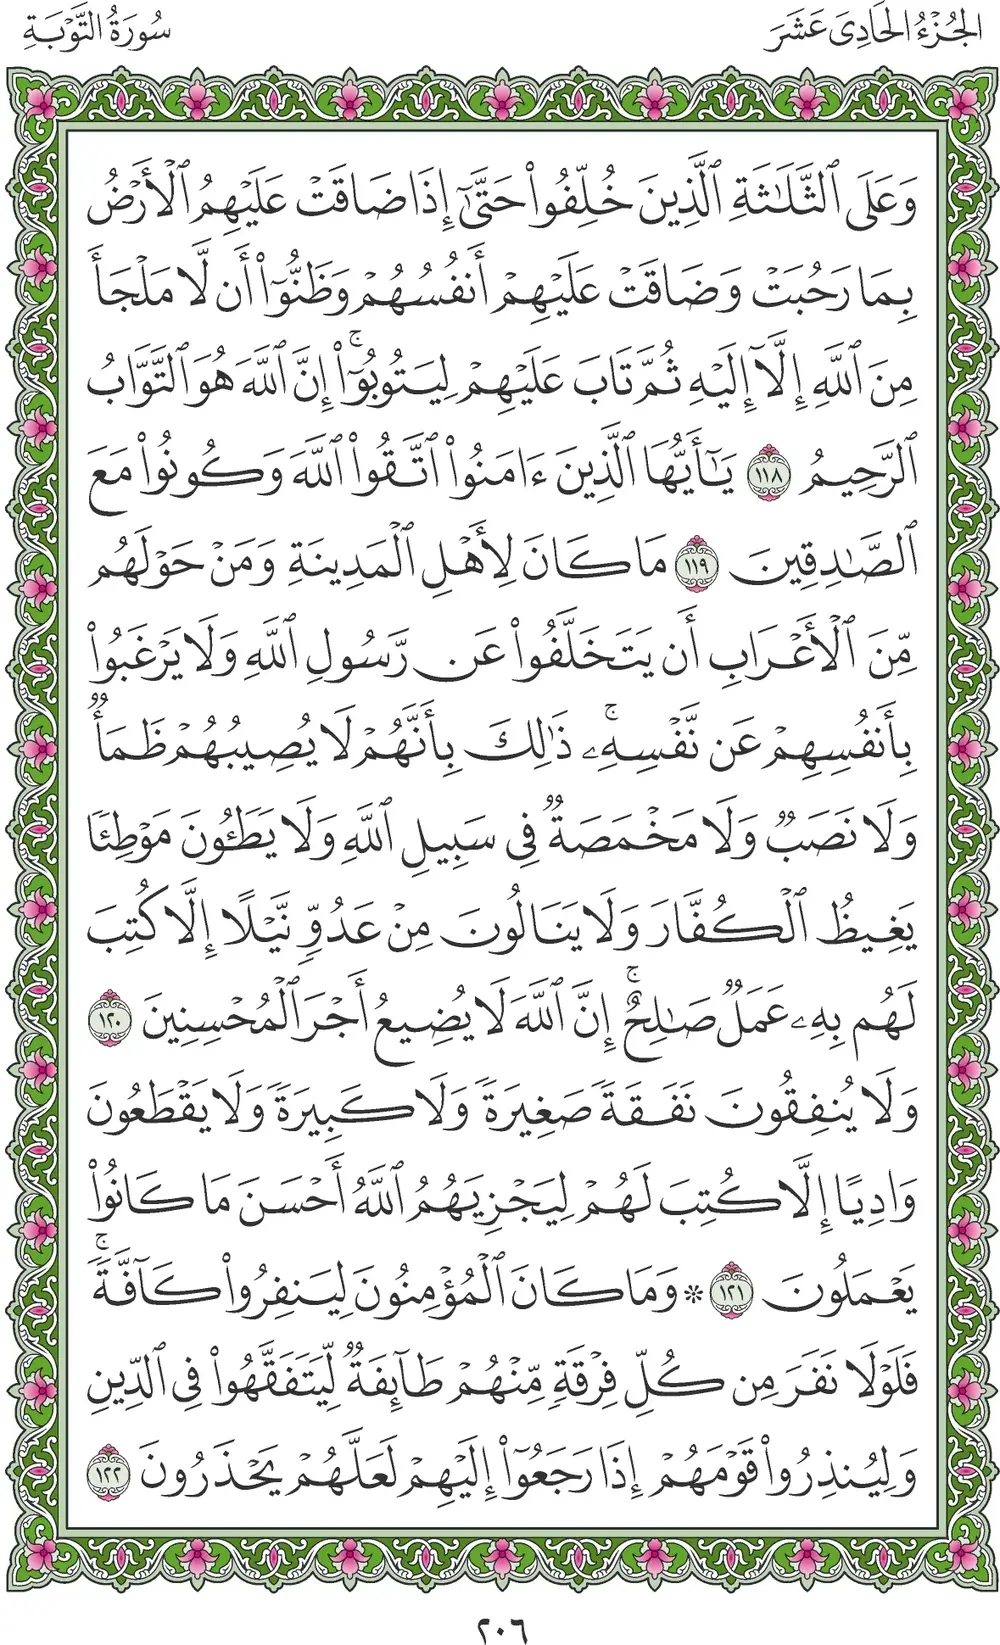 الجُزْءُ الحَادِىَ عَشَرَ
سُورَةُ التَّوْبَةِ
وَعَلَى ٱلثَّلَٰثَةِ ٱلَّذِينَ خُلِّفُوا۟ حَتَّىٰٓ إِذَا ضَاقَتْ عَلَيْهِمُ ٱلْأَرْضُ
بِمَا رَحُبَتْ وَضَاقَتْ عَلَيْهِمْ أَنفُسُهُمْ وَظَنُّوٓا۟ أَن لَّا مَلْجَأَ
مِنَ ٱللَّهِ إِلَّآ إِلَيْهِ ثُمَّ تَابَ عَلَيْهِمْ لِيَتُوبُوٓا۟ ۚ إِنَّ ٱللَّهَ هُوَ ٱلتَّوَّابُ
ٱلرَّحِيمُ ١١٨ يَٰٓأَيُّهَا ٱلَّذِينَ ءَامَنُوا۟ ٱتَّقُوا۟ ٱللَّهَ وَكُونُوا۟ مَعَ
ٱلصَّٰدِقِينَ ١١٩ مَا كَانَ لِأَهْلِ ٱلْمَدِينَةِ وَمَنْ حَوْلَهُم
مِّنَ ٱلْأَعْرَابِ أَن يَتَخَلَّفُوا۟ عَن رَّسُولِ ٱللَّهِ وَلَا يَرْغَبُوا۟
بِأَنفُسِهِمْ عَن نَّفْسِهِۦ ۚ ذَٰلِكَ بِأَنَّهُمْ لَا يُصِيبُهُمْ ظَمَأٌ
وَلَا نَصَبٌ وَلَا مَخْمَصَةٌ فِى سَبِيلِ ٱللَّهِ وَلَا يَطَـُٔونَ مَوْطِئًا
يَغِيظُ ٱلْكُفَّارَ وَلَا يَنَالُونَ مِنْ عَدُوٍّ نَّيْلًا إِلَّا كُتِبَ
لَهُم بِهِۦ عَمَلٌ صَٰلِحٌ ۚ إِنَّ ٱللَّهَ لَا يُضِيعُ أَجْرَ ٱلْمُحْسِنِينَ ١٢٠
وَلَا يُنفِقُونَ نَفَقَةً صَغِيرَةً وَلَا كَبِيرَةً وَلَا يَقْطَعُونَ
وَادِيًا إِلَّا كُتِبَ لَهُمْ لِيَجْزِيَهُمُ ٱللَّهُ أَحْسَنَ مَا كَانُوا۟
يَعْمَلُونَ ١٢١ ۞ وَمَا كَانَ ٱلْمُؤْمِنُونَ لِيَنفِرُوا۟ كَآفَّةً ۚ
فَلَوْلَا نَفَرَ مِن كُلِّ فِرْقَةٍ مِّنْهُمْ طَآئِفَةٌ لِّيَتَفَقَّهُوا۟ فِى ٱلدِّينِ
وَلِيُنذِرُوا۟ قَوْمَهُمْ إِذَا رَجَعُوٓا۟ إِلَيْهِمْ لَعَلَّهُمْ يَحْذَرُونَ ١٢٢
٢٠٦